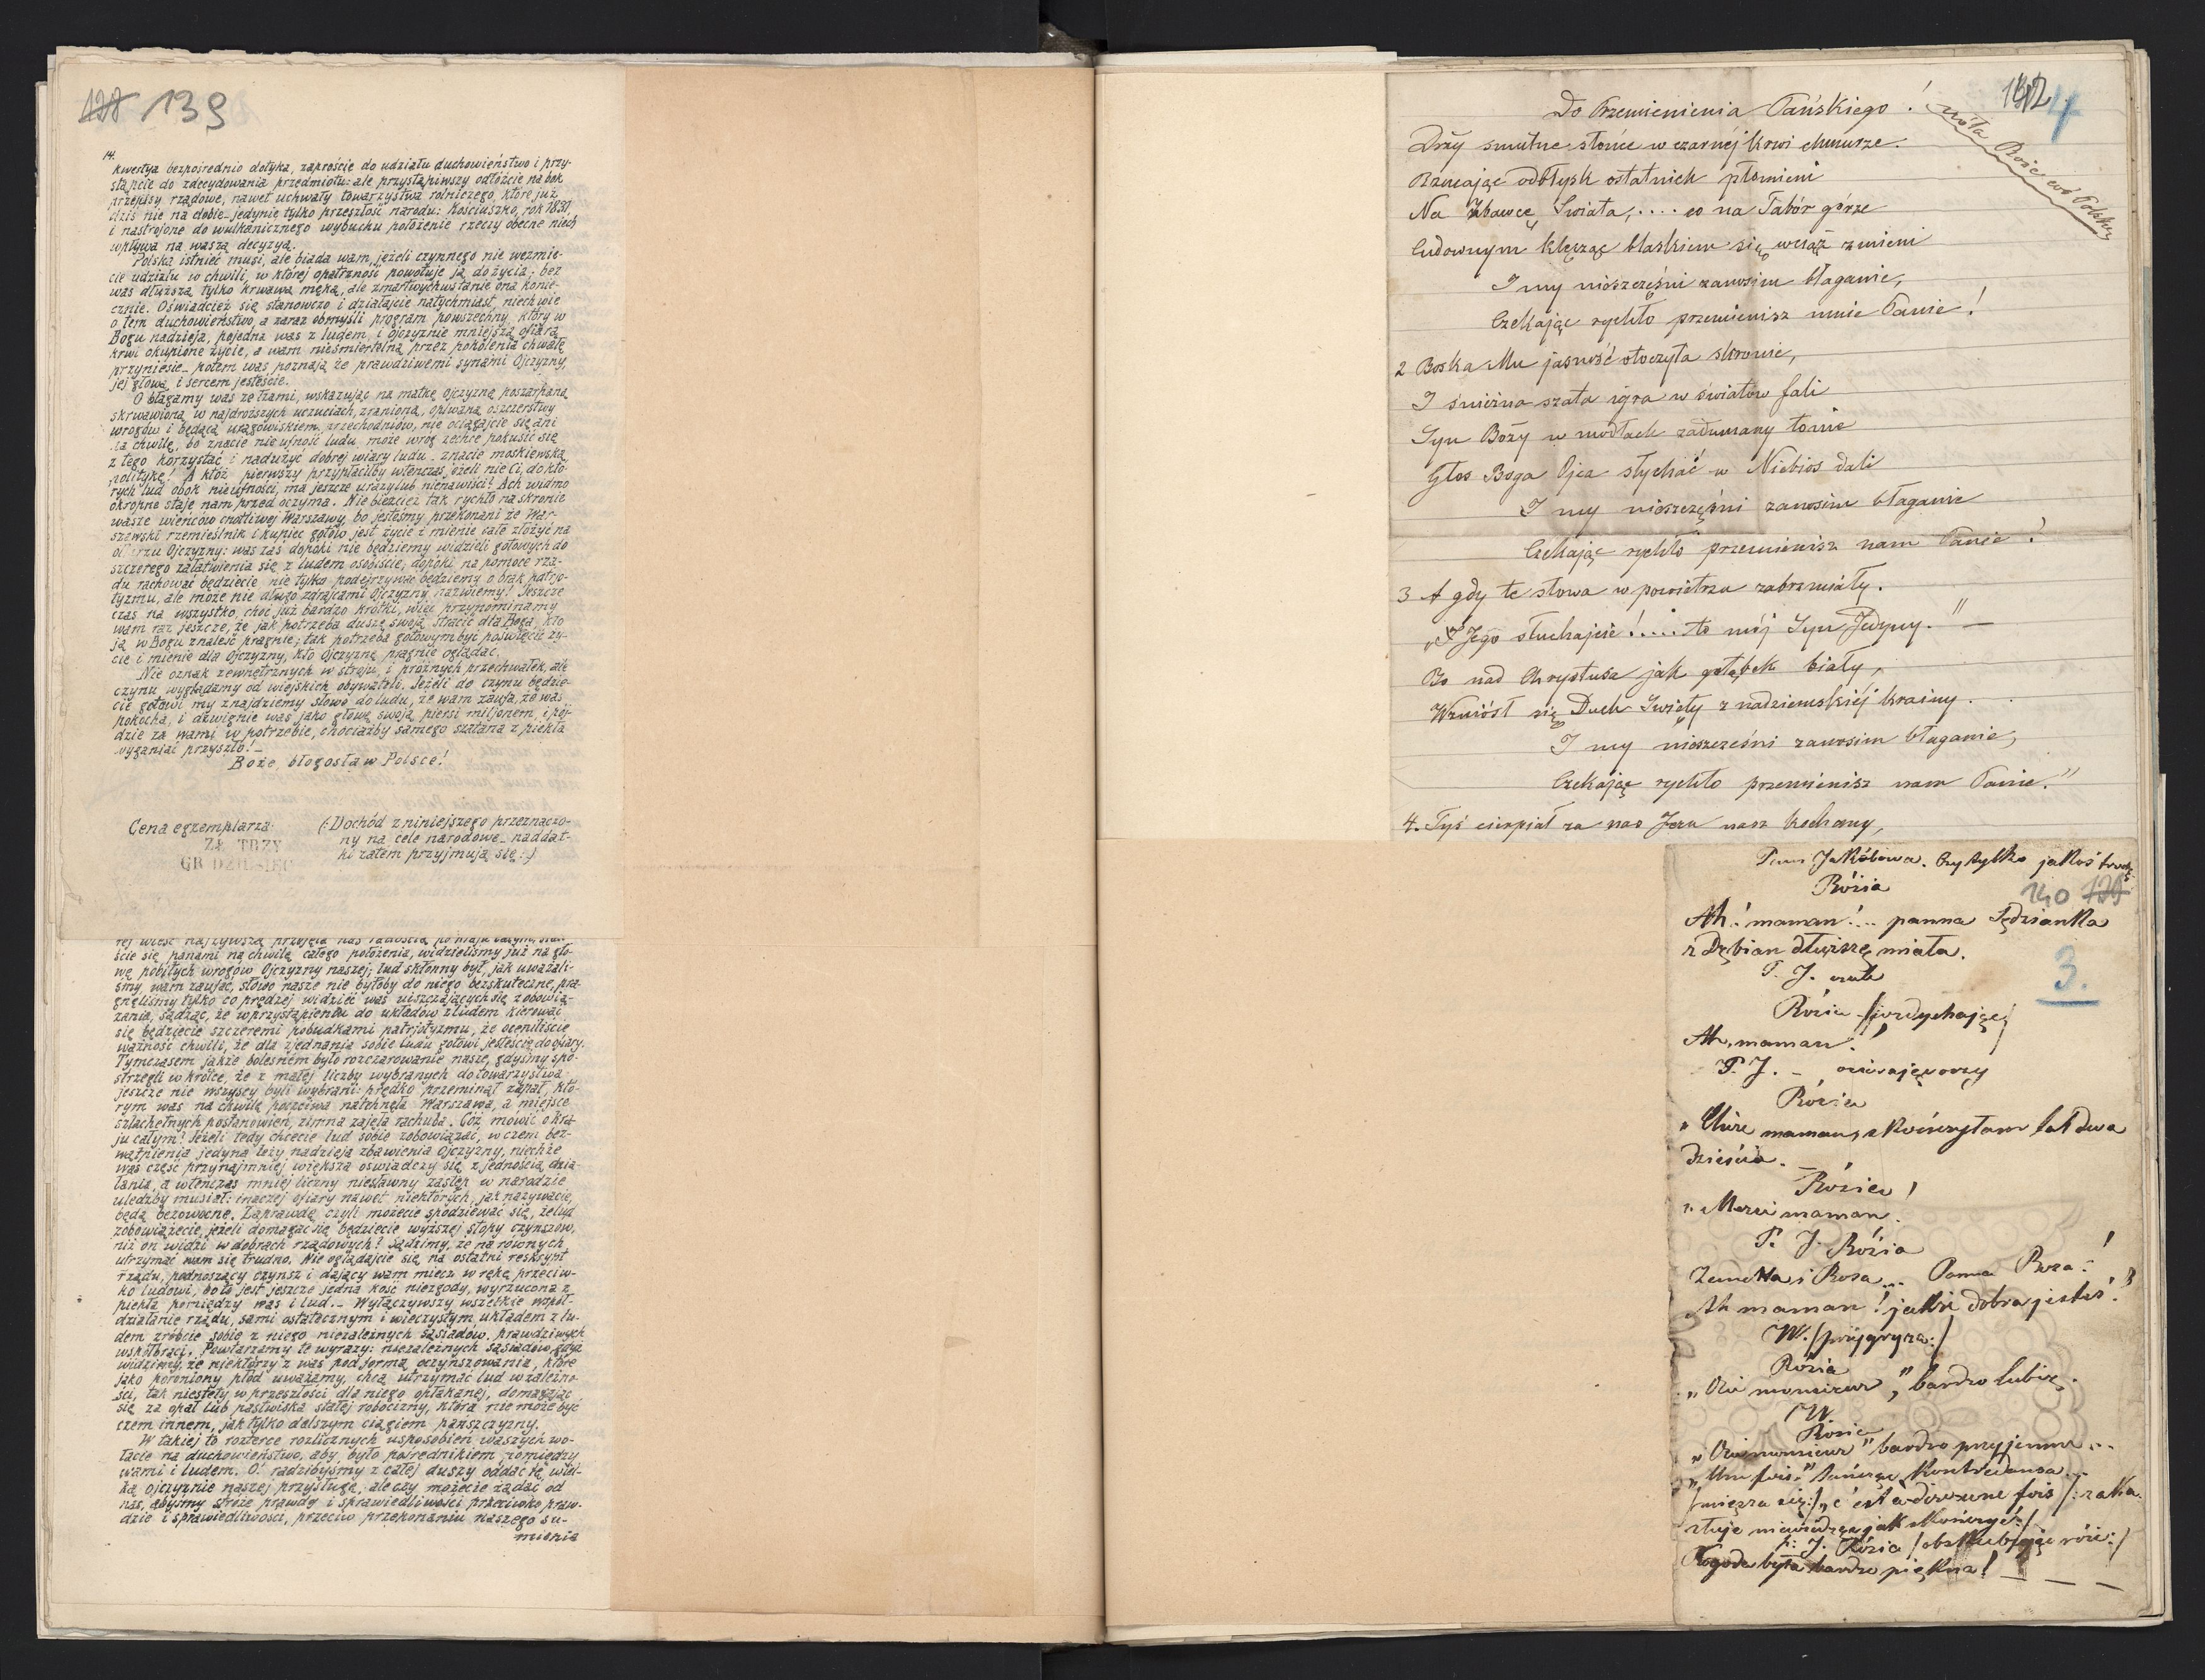 139
14.
kwestya bezpośrednio dotyka, zaproście do udziału duchowieństwo i przy-
stąpcie do zdecydowania przedmiotu: ale przystąpiwszy odłóżcie na bok
przepisy rządowe, nawet uchwały towarzystwa rolniczego, które już
dziś nie na dobie_ jedynie tylko przeszłość narodu: Kościuszko, rok 1831,
i nastrojone do wulkanicznego wybuchu położenie rzeczy obecne niech
wpływa na waszą decyzyą.
Polska istnieć musi, ale biada wam, jeżeli czynnego nie weźmie-
cie udziału w chwili, w której opatrzność powołuje ją do życia; bez
was dłuższa tylko krwawa męka, ale zmartwychwstanie ona konie-
cznie. Oświadczeż się stanowczo i działajcie natychmiast, niech wie
o tem duchowieństwo, a zaraz obmyśli program powszechny, który w
Bogu nadzieja, pojedna was z ludem, i Ojczyznie mniejszą ofiarą
krwi okupione życie, a wam nieśmiertelną przez pokolenia chwałę
przyniesie_ potem was poznają że prawdziwemi synami Ojczyzny,
jej głową i sercem jesteście.
O błagamy was ze łzami, wskazując na matkę Ojczyznę poszarpaną
skrwawioną w najdroższych uczuciach, zranioną, opiwaną oszczerstwy
wrogów i będącą urągowiskiem przechodniów, nie ociągajcie się ani
na chwilę, bo znacie nieufność ludu, może wróg zechce pokusić się
z tego korzystać i nadużyć dobrej wiary ludu_ znacie moskiewską
politykę! A któż pierwszy przypłaciłby wtenczas, jeżeli nie Ci, do któ-
rych lud obok nieufności, ma jeszcze urazy lub nienawiści! Ach widmo
okropne staje nam przed oczyma. Nie bierzcież tak rychło na skronie
wasze wieńców cnotliwej Warszawy, bo jesteśmy przekonani że War-
szawski rzemieślnik i kupiec gotów jest życie i mienie całe złożyć na
ołtarzu Ojczyzny: was zaś dopóki nie będziemy widzieli gotowych do
szczerego załatwienia się z ludem osobiście, dopóki na pomoce rzą-
du rachować będziecie nie tylko podejrzywać będziemy o brak patrjo-
tyzmu, ale może nie długo zdrajcami Ojczyzny nazwiemy! Jeszcze
czas na wszystko, choć już bardzo krótki, więc przypominamy
wam raz jeszcze, że jak potrzeba duszę swoją stracić dla Boga, kto
ją w Bogu znaleść pragnie; tak potrzeba gotowym być poświęcić ży-
cie i mienie dla Ojczyzny, kto Ojczyznę pragnie oglądać.
Nie oznak zewnętrznych w stroju, i próżnych przechwałek, ale
czynu wyglądamy od wiejskich obywateli. Jeżeli do czynu będzie-
cie gotowi my znajdziemy słowo do ludu, że wam zaufa, że was
pokocha, i dźwignie was jako głowę swoją, piersi miljonem, i pój-
dzie za wami w potrzebie, chociażby samego szatana z piekła
wyganiać przyszło!_
Boże, błogosław Polsce!
Cena egzemplarza:
ZŁ TRZY
GR DZIESIĘĆ
(:Dochód z niniejszego przeznaczo-
ny na cele narodowe_ naddat-
ki zatem przyjmują się:)
rej wieść najżywszą przejęła nas radością po kraju całym,
ście się panami na chwilę całego położenia, widzieliśmy już na gło-
wę pobitych wrogów Ojczyzny naszej; lud skłonny był, jak uważali-
śmy, wam zaufać, słowo nasze nie byłoby do niego bezskuteczne, pra-
gnęliśmy tylko co prędzej widzieć was uiszczających się z obowią-
zania, sądząc, że w przystąpieniu do układów z ludem kierować
się będziecie szczeremi pobudkami patrjotyzmu, że oceniliście
ważność chwili, że dla zjednania sobie ludu gotowi jesteście do ofiary.
Tymczasem jakże bolesném było rozczarowanie nasze, gdyśmy spo-
strzegli w krótce, że z małej liczby wybranych do towarzystwa
jeszcze nie wszyscy byli wybrani: prędko przeminął zapał, któ-
rym was na chwilę poczciwa natchnęła Warszawa, a miejsce
szlachetnych postanowień, zimna zajęła rachuba. Cóż mówić o kra-
ju całym! Jeżeli tedy chcecie lud sobie zobowiązać, w czem bez-
wątpienia jedyna leży nadzieja zbawienia Ojczyzny, niechże
was część przynajmniej większa oświadczy się z jednością dzia-
łania, a wtenczas mniej liczny niesławny zastęp w narodzie
uledzby musiał: inaczej ofiary nawet niektórych, jak nazywacie,
będą bezowocne. Zaprawdę czyli możecie spodziewać się, że lud
zobowiążecie, jeżeli domagać się będziecie wyższej stopy czynszów,
niż on widzi w dobrach rządowych? Sądzimy, że na równych
utrzymać wam się trudno. Nie oglądajcie się na ostatni reskrypt
rządu, podnoszący czynsz i dający wam miecz w rękę przeciw-
ko ludowi, bo to jest jeszcze jedna kość niezgody, wyrzucona z
piekła pomiędzy was i lud._ Wyłączywszy wszelkie współ-
działanie rządu, sami ostatecznym i wieczystym układem z lu-
dem zróbcie sobie z niego niezależnych sąsiadów, prawdziwych
współbraci. Powtarzamy te wyrazy: niezależnych sąsiadów, gdyż
widzimy, że niektórzy z was pod formą oczynszowania, które
jako poroniony płód uważamy, chcą utrzymać lud w zależno-
ści, tak niestety w przeszłości dla niego opłakanej, domagając
się za opał lub pastwiska stałej robocizny, która nie może być
czem innem, jak tylko dalszym ciągiem pańszczyzny.
W takiej to rozterce rozlicznych usposobień waszych wo-
łacie na duchowieństwo, aby było pośrednikiem pomiędzy
wami i ludem. O! radzibyśmy z całej duszy oddać tę wiel-
ką ojczyznie naszej przysługę, ale czy możecie żądać od
nas, abyśmy stróże prawdy i sprawiedliwości przeciwko praw-
dzie i sprawiedliwości, przeciw przekonaniu naszego su-
mienia
Do Przemienienia Pańskiego!
nóta Boże coś Polskę
4
Drży smutne słońce w czarnéj krwi chmurze.
Rzucając odbłysk ostatnich płomieni
Na Zbawcę Świata,.... co na Tabór górze
Cudownym klęcząc blaskiem się wciąż zmieni
I my nieszczęśni zanosim błaganie,
Czekając rychło przemienisz mnie Panie!
2 Boska Mu jasność otoczyła skronie,
I śnieżna szata igra w światów fali
Syn Boży w modłach zadumany tonie
Głos Boga Ojca słychać w Niebios dali
I my nieszczęśni zanosim błaganie
Czekając rychło przemienisz nam Panie!
3 A gdy te słowa w powietrzu zabrzmiały.
„Jego słuchajcie!.... to mój Syn Jedyny."—
Bo nad Chrystusa jak gołąbek biały,
Wzniósł się Duch Święty z nadziemskiéj krainy.
I my nieszczęśni zanosim błaganie,
Czekając rychło przemienisz nam Panie."
4. Tyś cierpiał za nas Jezu nasz kochany,
Pani Jakóbowa. Czy tylko jakoś
Rózia
140
Ah! maman!... panna Sędzianka
z Dębian dłuższę miała.
3.
P. J.
Rózia /:wzdychając:/
Ah, maman!
P. J. –
Rózia
maman, skończyłam lat dwa
dzieścia. —
Rózia!
„Merci maman.
P. J. Rózia
i Rosa... Panna Roza!
Ah maman! jakże dobra jesteś!
W. /:przygrywa:/
Rózia
„Oui monsieur," bardzo lubię.
W
Rózia
„Oui monsieur" bardzo przyjemne...
tańcząc kontredansa...
/:zaka-
niewiedząc jak skończyć:/
p: J. Rózia /obskubując róże:/
Pogoda była bardzo piękna! — — —